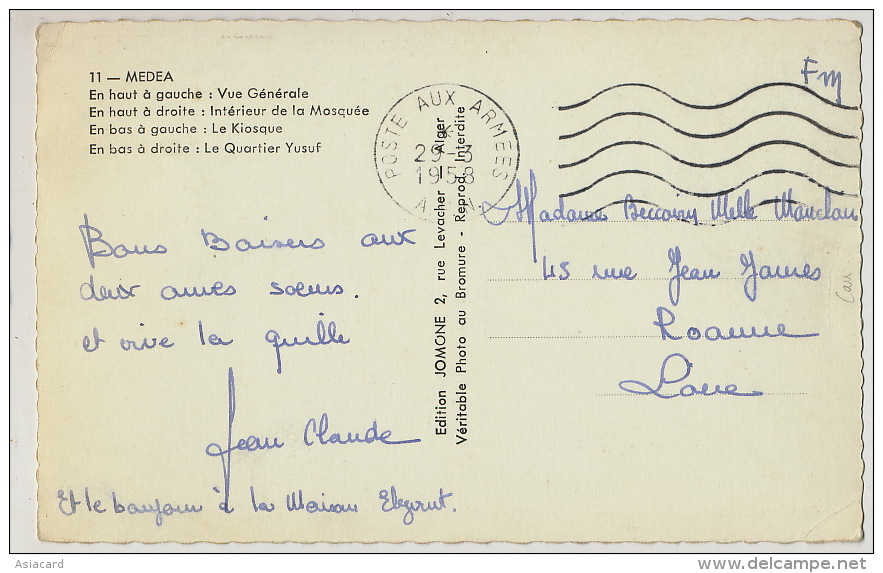 11 — MEDEA
En haut à gauche : Vue Générale
En haut à droite : Intérieur de la Mosquée
En bas à gauche : Le Kiosque
En bas à droite : Le Quartier Yusuf
POSTE AUX ARMEES
29-3
1958
A.F.N.
Fm
Bons Baisers aux
deux ames soeurs.
et vive la quille
Jean Claude
Et le bonjour à la Maison
Edition JOMONE 2, rue Levacher - Alger
Véritable Photo au Bromure - Reprod. Interdite
Madame Melle
45 rue Jean Jaures
Roanne
Loire
Asiacard
delcampe.net